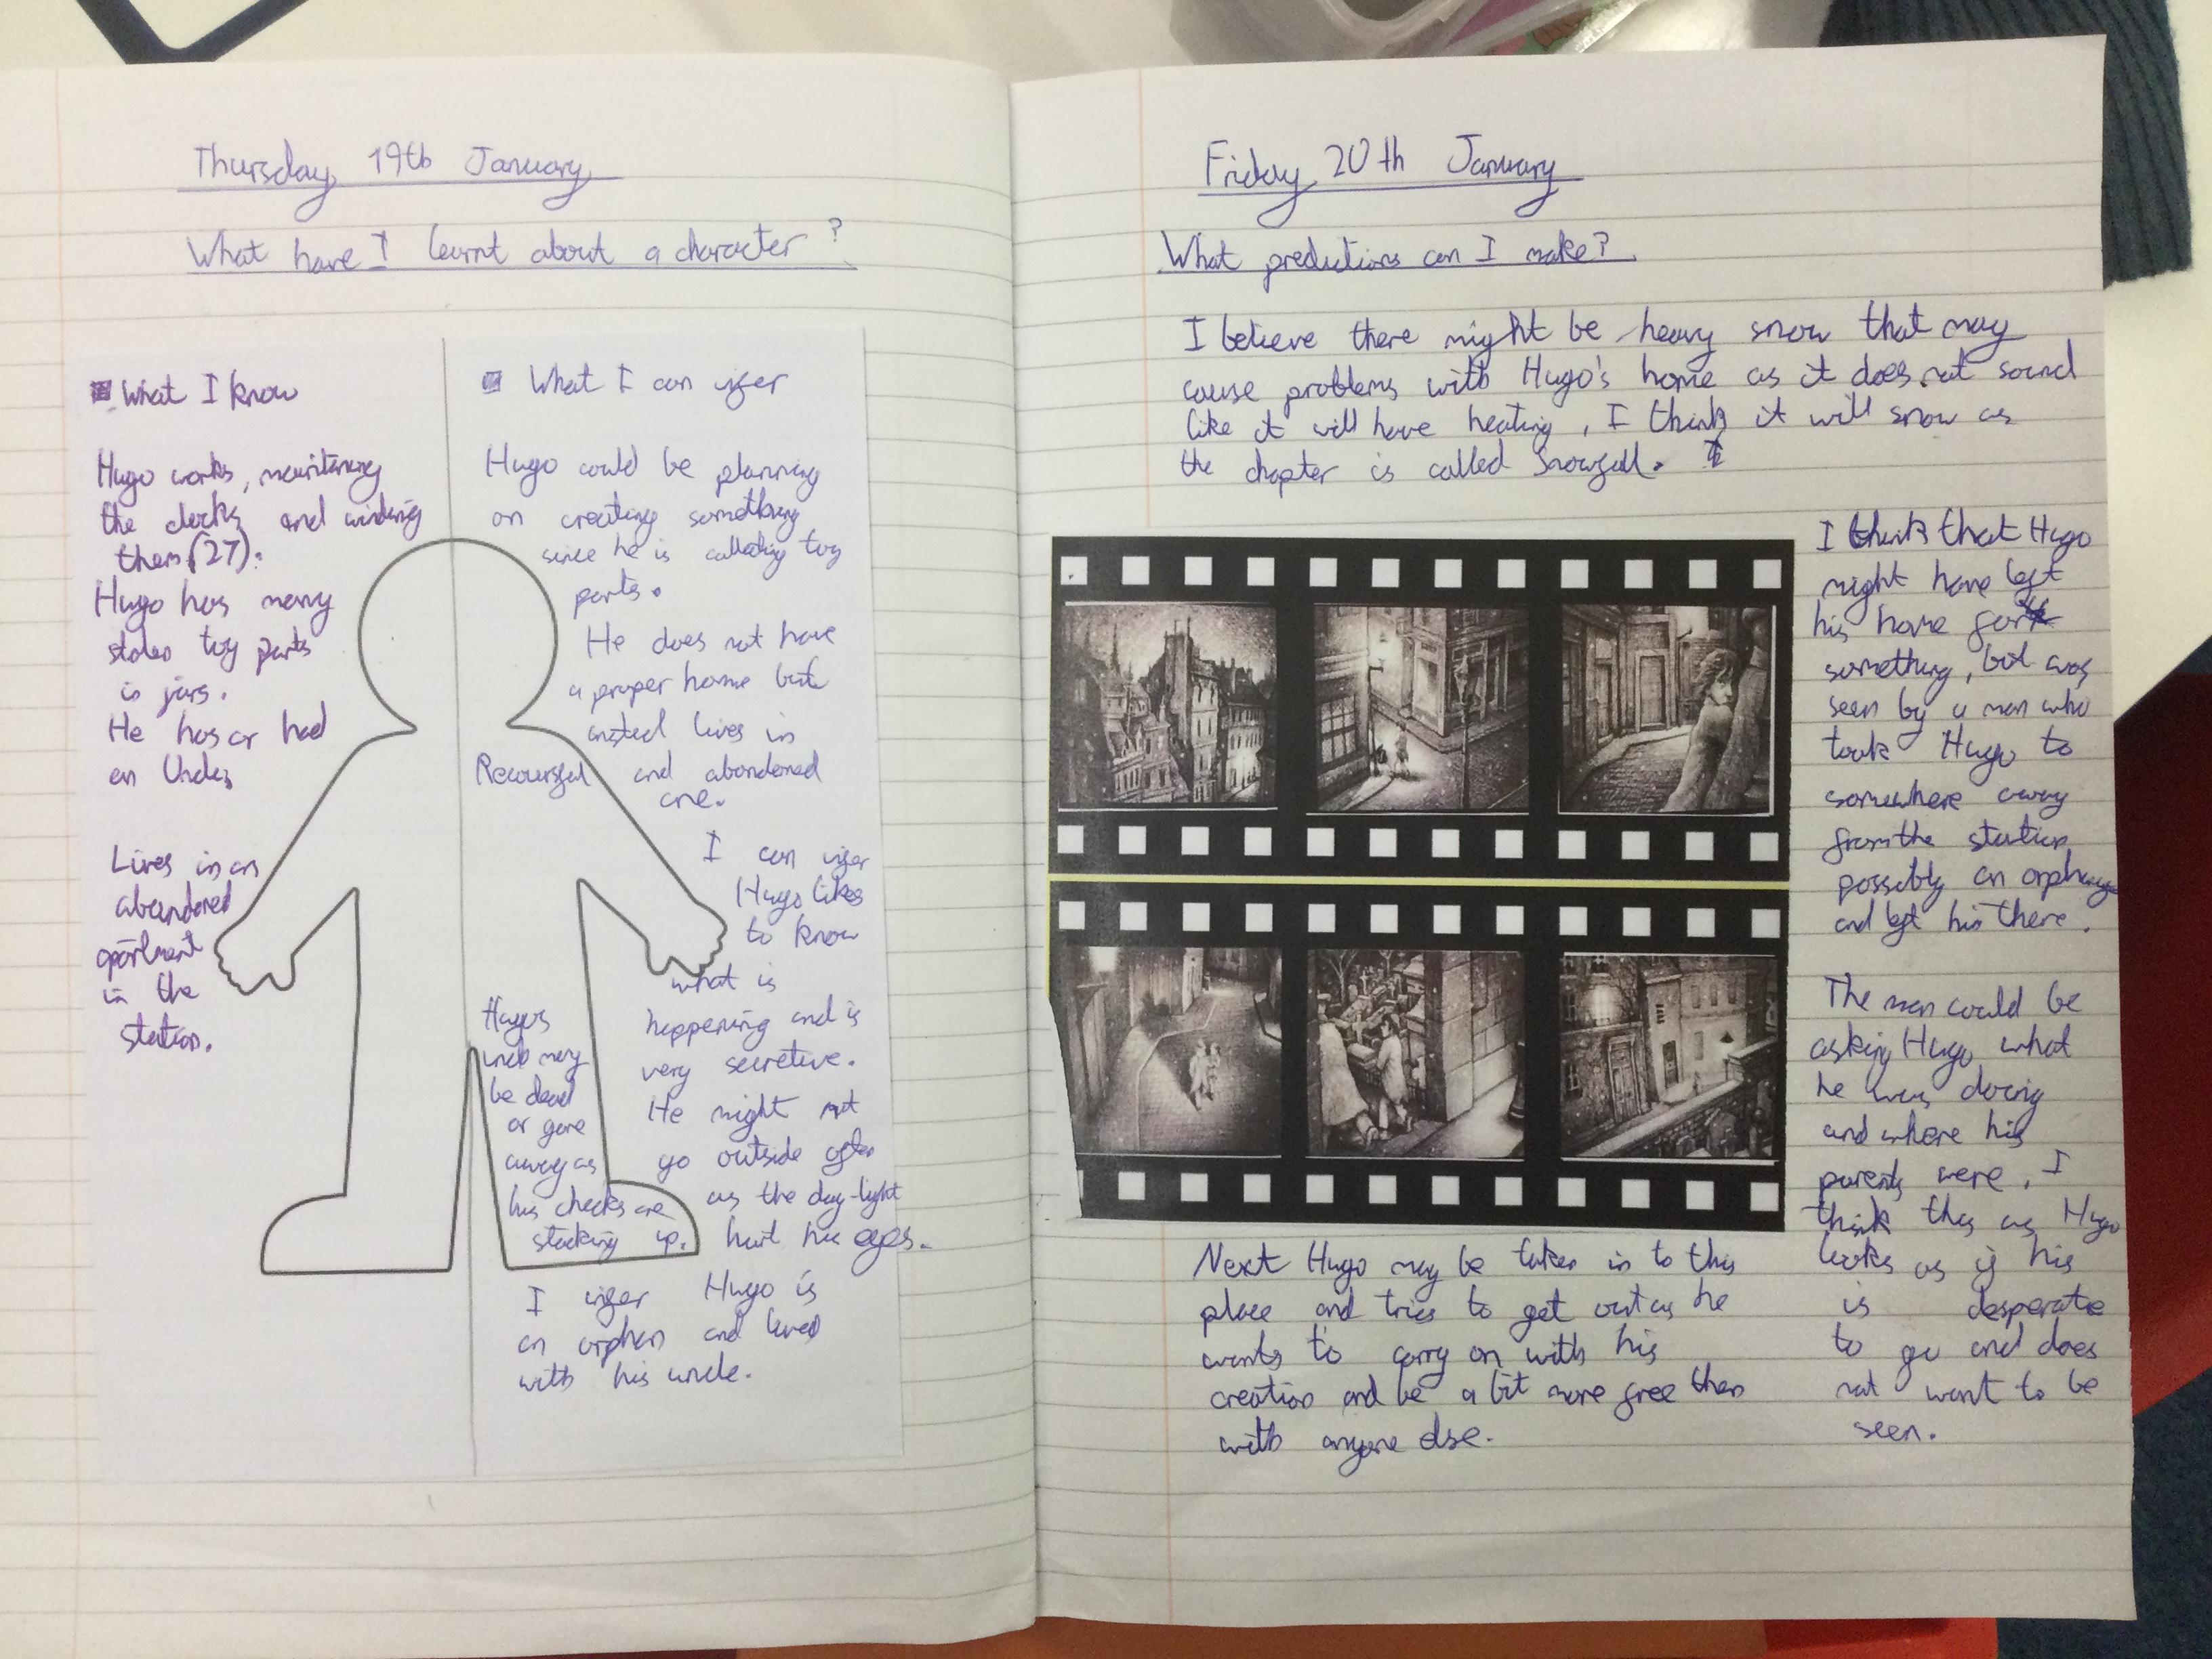 Thursday 19th January
What have I learnt about a character?
What I know
Hugo works,
the clocks and winding
them (27).
Hugo has many
stolen toy parts
in jars.
He has or had
an Uncle
Lives in an
abandored
apartment
in the
station.
What I can infer
Hugo could be planning
on creating something
since he is collecting toy
parts.
He does not have
a proper home but
insted lives in
Recoursful
and abandoned
one.
I can infer
Hugo likes
to know
what is
happening and is
very secretive.
He might not
go outside often
as the day-light
hurt his eyes.
Hugos
uncle may
be dead
or gone
away as
his checks are
stacking up.
I infer Hugo is
an orphan and lived
with his uncle.
Friday 20th January
What predictions can I make?
I believe there might be heavy snow that may
cause problems with Hugo's home as it does not sound
like it will have heating, I think it will snow as
the chapter is called Snowfall.
I think that Hugo
might have left
his home for
something, but was
seen by a man who
took Hugo to
somewhere away
from the station
possibly an orphanage
and left his there.
The man could be
asking Hugo what
he was doing
and where his
parents were, I
think this as Hugo
looks as if his
is desperate
to go and does
not want to be
seen.
Next Hugo may be taken in to this
place and tries to get out as he
wants to carry on with his
creation and be a bit more free then
with anyone else.